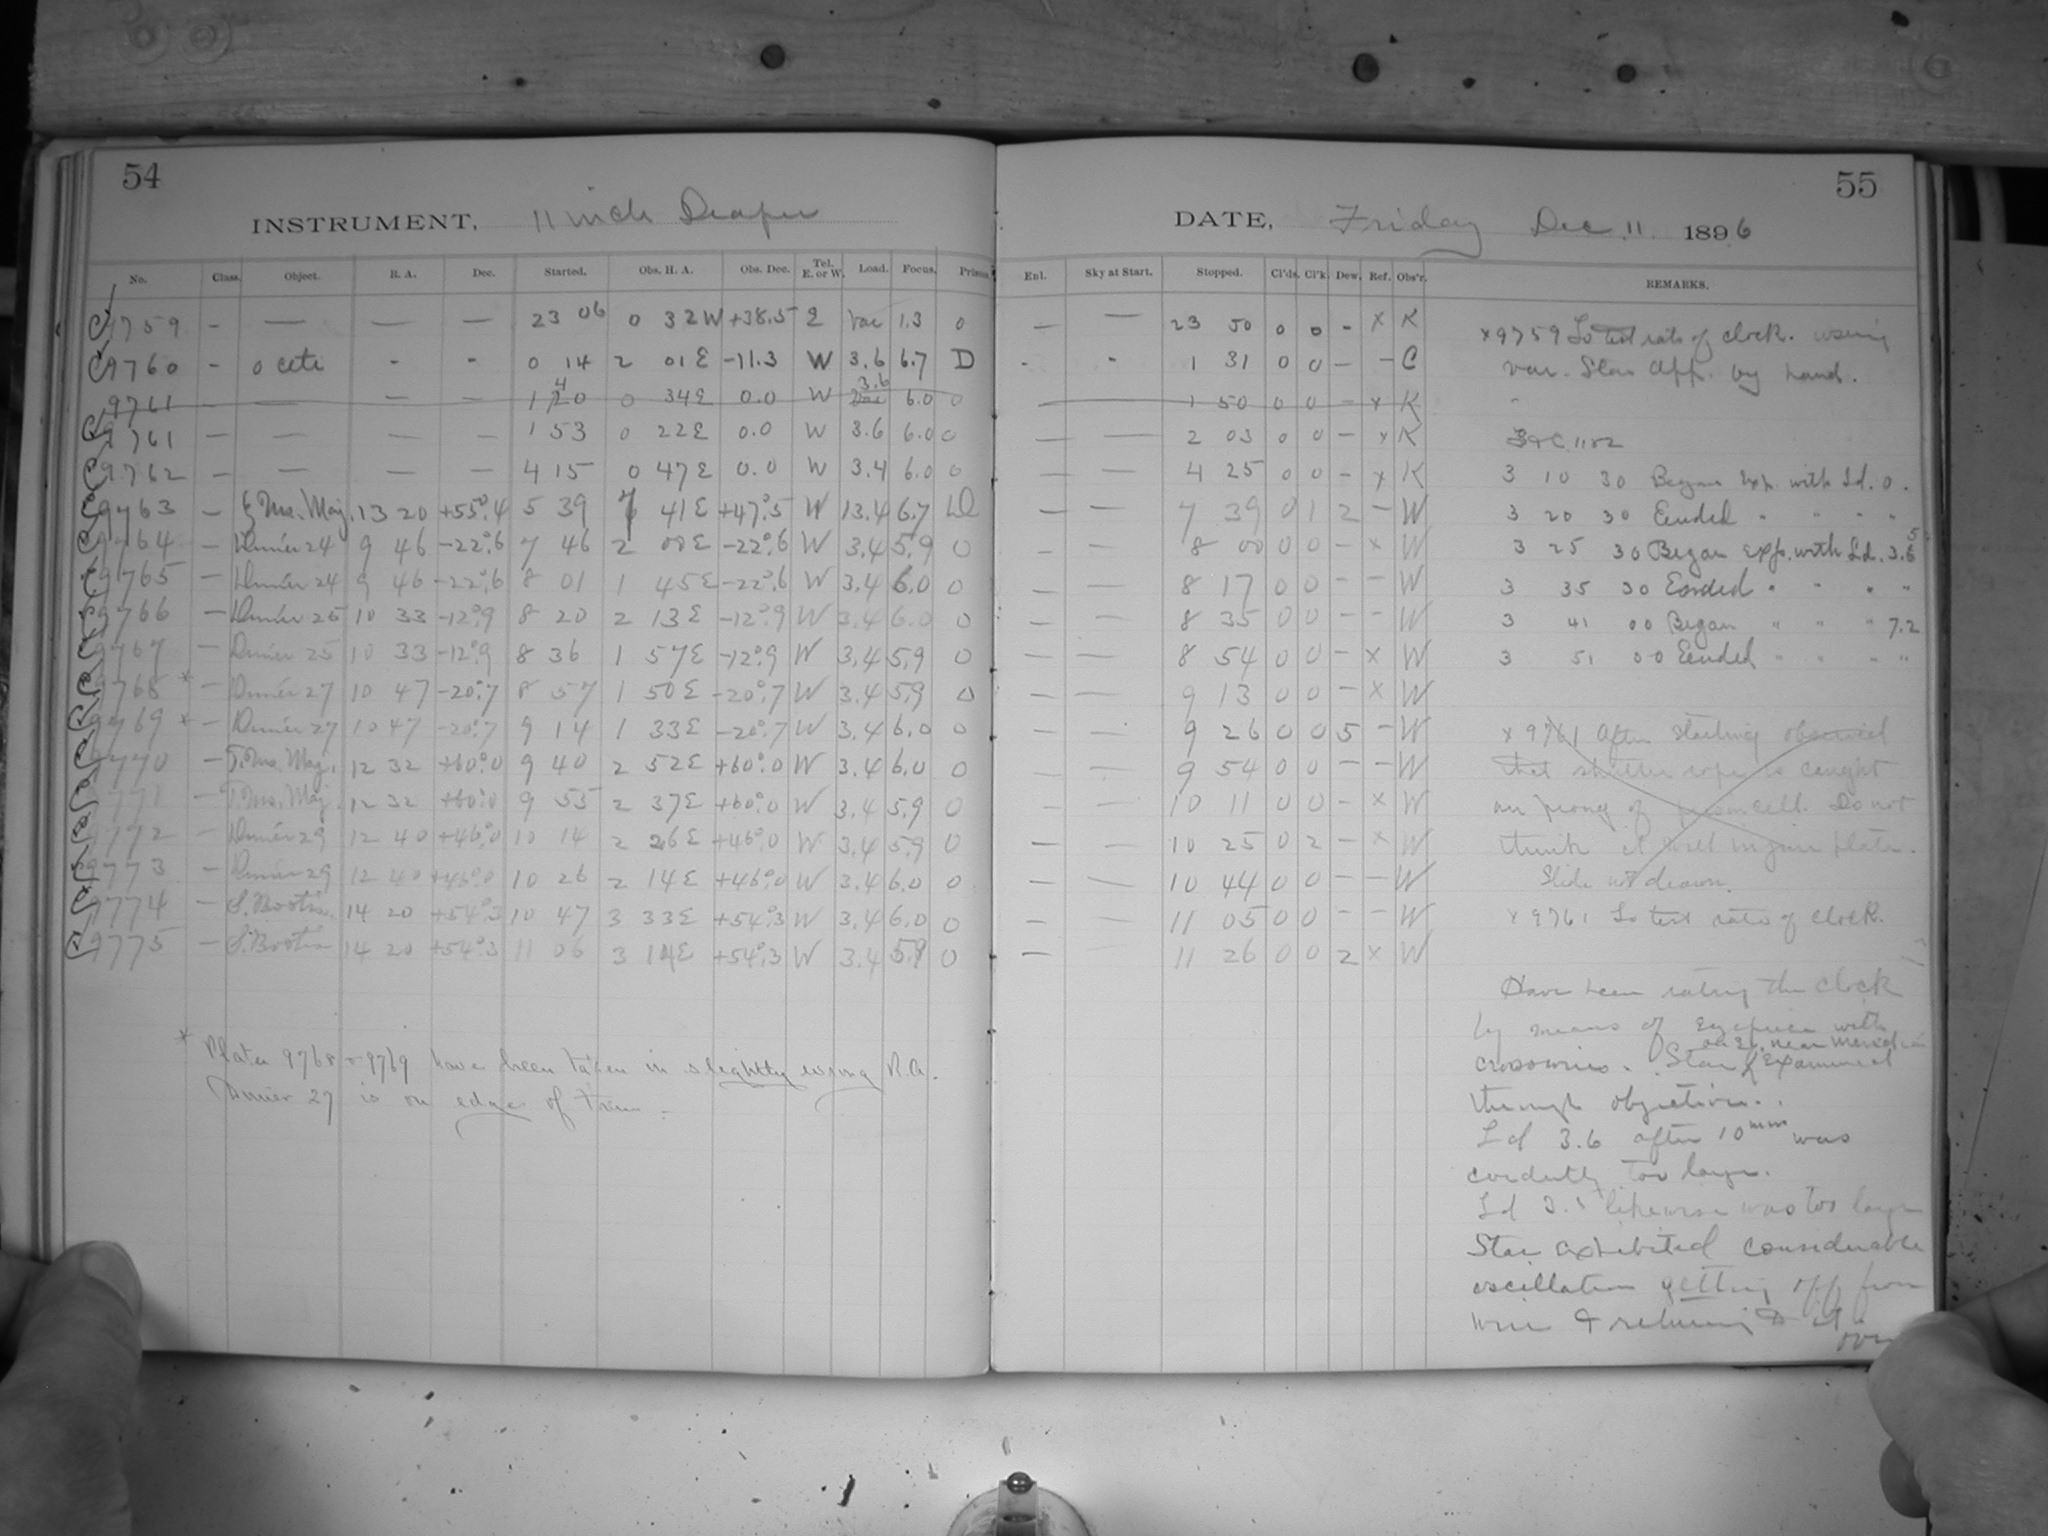 54
INSTRUMENT, 11 inch Draper
No. Class. Object. R. A. Dec. Started. Obs. H. A. Obs. Dec. Tel. E. or W. Load. Focus. Prism.
C 9759 - — — — 23 06 0 32W +38.5 E Var 1.3 0
C 9760 - o ceti - - 0 14 2 01E -11.3 W 3.6 6.7 D
9761 — — — — 1 40 0 34E 0.0 W 3.6 6.0 0
C 9761 — — — — 1 53 0 22E 0.0 W 3.6 6.0 0
C 9762 — — — — 4 15 0 47E 0.0 W 3.4 6.0 0
C 9763 — Urs. Maj. 13 20 +55°.4 5 39 7 41E +47°.5 W 13.4 6.7 D
C 9764 — Dunér 24 9 46 -22°.6 7 46 2 00E -22°.6 W 3.4 5.9 0
C 9765 — Dunér 24 9 46 -22°.6 8 01 1 45E -22°.6 W 3.4 6.0 0
C 9766 — Dunér 25 10 33 -12°.9 8 20 2 13E -12°.9 W 3.4 6.0 0
C 9767 — Dunér 25 10 33 -12°.9 8 36 1 57E -12°.9 W 3.4 5.9 0
C 9768 * — Dunér 27 10 47 -20°.7 8 57 1 50E -20°.7 W 3.4 5.9 0
C 9769 * — Dunér 27 10 47 -20°.7 9 14 1 33E -20°.7 W 3.4 6.0 0
C 9770 — T. Urs. Maj. 12 32 +60°.0 9 40 2 52E +60°.0 W 3.4 6.0 0
C 9771 — T. Urs. Maj. 12 32 +60°.0 9 55 2 37E +60°.0 W 3.4 5.9 0
C 9772 — Dunér 29 12 40 +46°.0 10 14 2 26E +46°.0 W 3.4 5.9 0
C 9773 — Dunér 29 12 40 +46°.0 10 26 2 14E +46°.0 W 3.4 6.0 0
C 9774 — S. Bootis 14 20 +54°.3 10 47 3 33E +54°.3 W 3.4 6.0 0
C 9775 — S. Bootis 14 20 +54°.3 11 06 3 14E +54°.3 W 3.4 5.9 0
* Plates 9768 & 9769 have been taken in slightly wrong R.A.
Dunér 27 is on edge of them.
55
DATE, Friday Dec. 11 1896
Enl. Sky at Start. Stopped. Cl'ds. Cl'k. Dew. Ref. Obs'r. REMARKS.
— — 23 50 0 0 - x K
- - 1 31 0 0 — - C
— — 1 50 0 0 - x K
— — 2 03 0 0 — x K
— — 4 25 0 0 - x K
— — 7 39 0 1 2 - W
— — 8 00 0 0 - x W
— — 8 17 0 0 - - W
— — 8 35 0 0 - - W
— — 8 54 0 0 - x W
— — 9 13 0 0 - x W
— — 9 26 0 0 5 - W
— — 9 54 0 0 - - W
— — 10 11 0 0 - x W
— — 10 25 0 2 - x W
— — 10 44 0 0 - - W
— — 11 05 0 0 - - W
— — 11 26 0 0 2 x W
x 9759 To test rate of clock. using
var. Star App. by hand.
3 10 30 Began Exp. with Ld. 0.
3 20 30 Ended " " " "
3 25 30 Began exp. with Ld. 3.5
3 35 30 Ended " " "
3 41 00 Began " " " 7.2
3 51 00 Ended " " " "
x 9761 After starting observed
that shutter rope is caught
on prong of prism cell. Do not
think it will injure plate.
Slide not drawn.
x 9761 To test rate of clock.
Have been rating the clock
by means of Eyepiece with
crosswires. Star on Eq. near Meridian Examined
through objective.
Ld 3.6 after 10 min was
evidently too large.
Ld likewise was too large
Star exhibited considerable
oscillation getting off from
wire & returning to it.
over